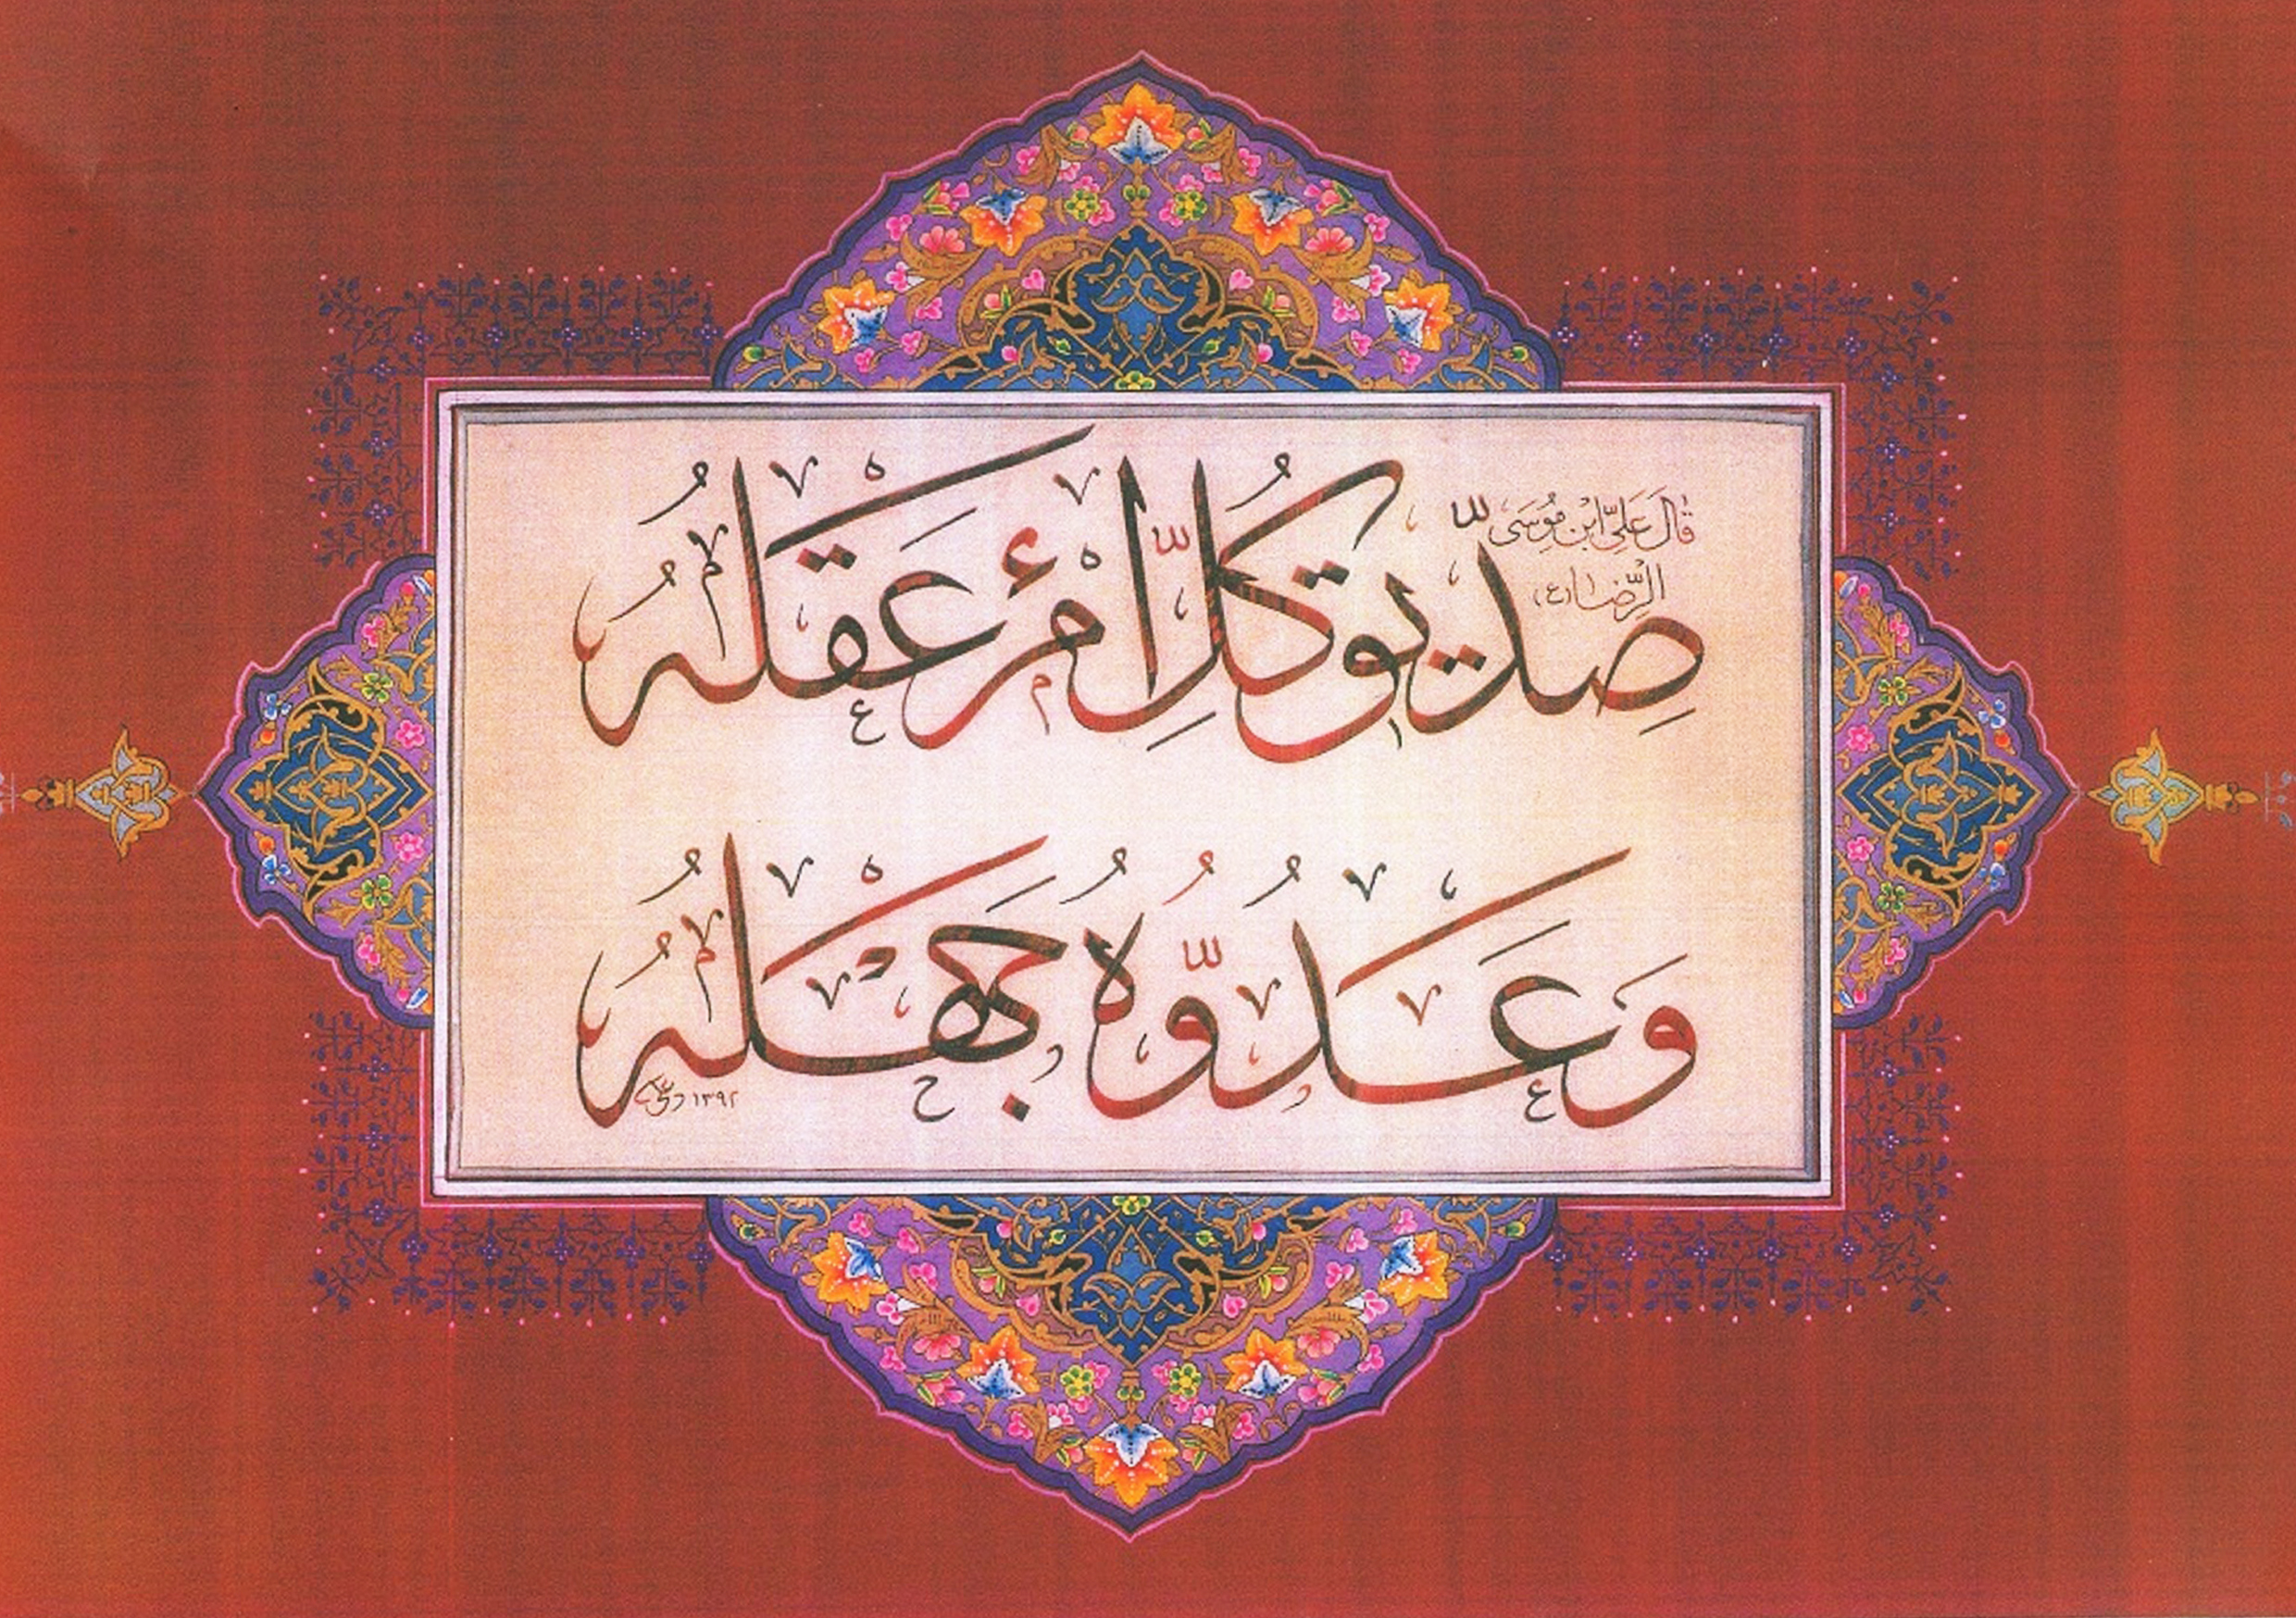 قَالَ عَلِيّ ابْنِ مُوسَى
الرِّضا (ع)
صِدیقُ کُلِّ امْرِئٍ عَقْلُهُ
وَعَدُوُّهُ جَهْلُهُ
۱۳۹۲